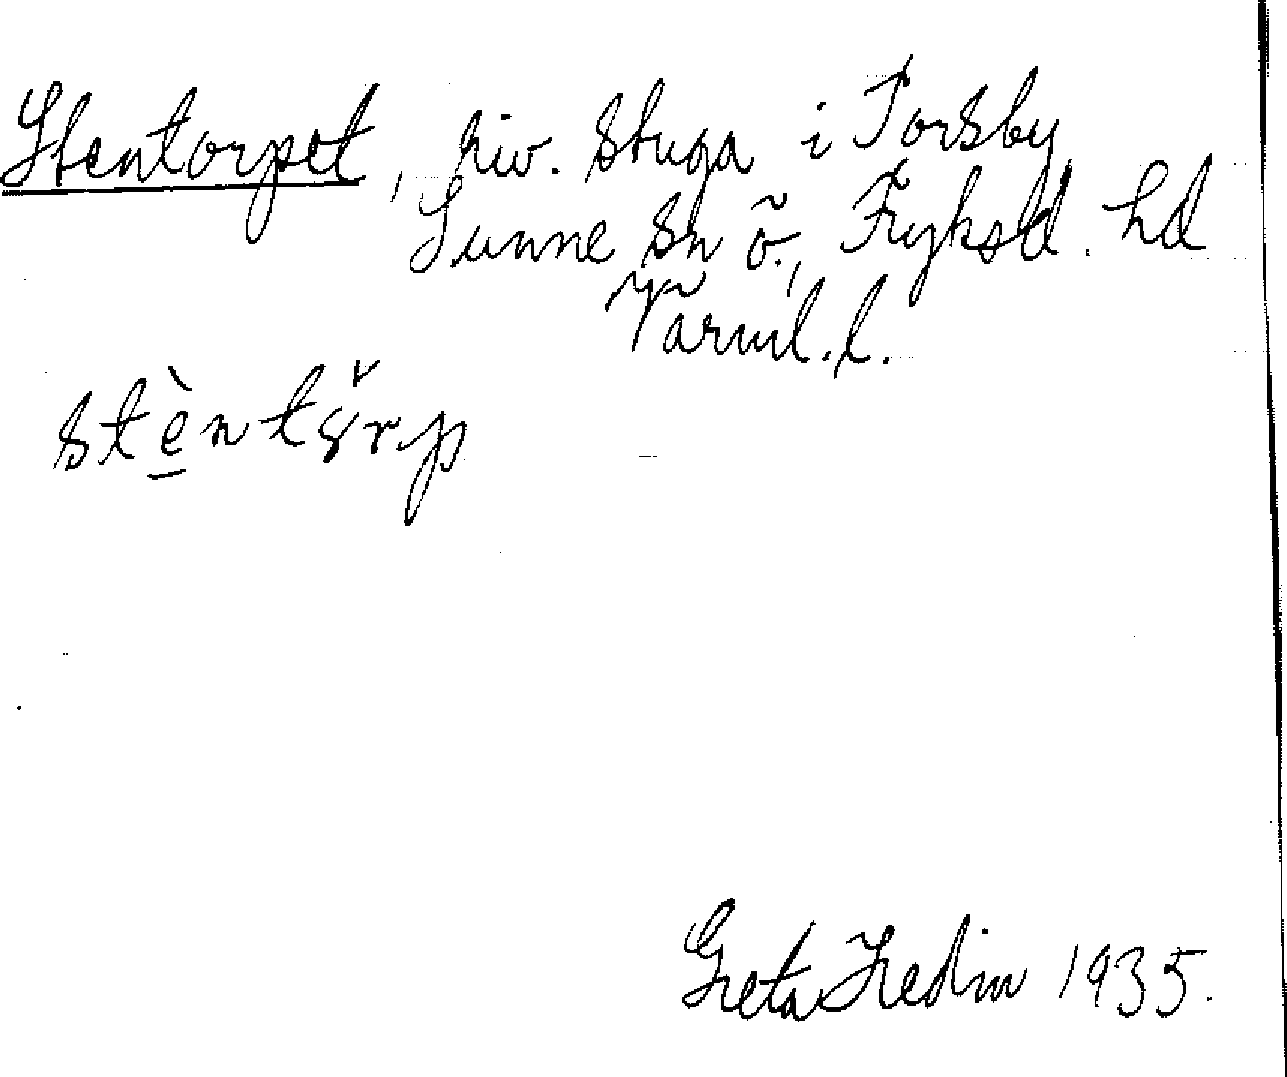 Stentorpet, riv. stuga i Torsby
Sunne sn ö., Fryksd. hd
Värml. l.
stèntŏ̤rp
Greta Hedin 1935.